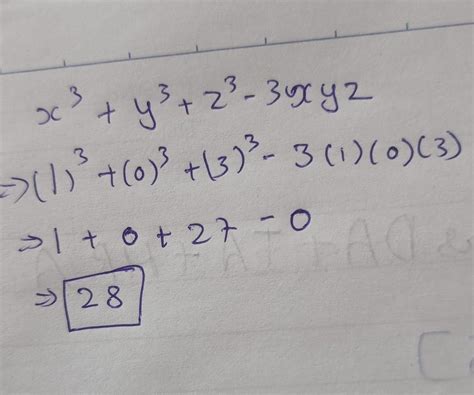 x³ + y³ + z³ - 3xyz
⇒ (1)³ + (0)³ + (3)³ - 3(1)(0)(3)
⇒ 1 + 0 + 27 - 0
⇒ 28